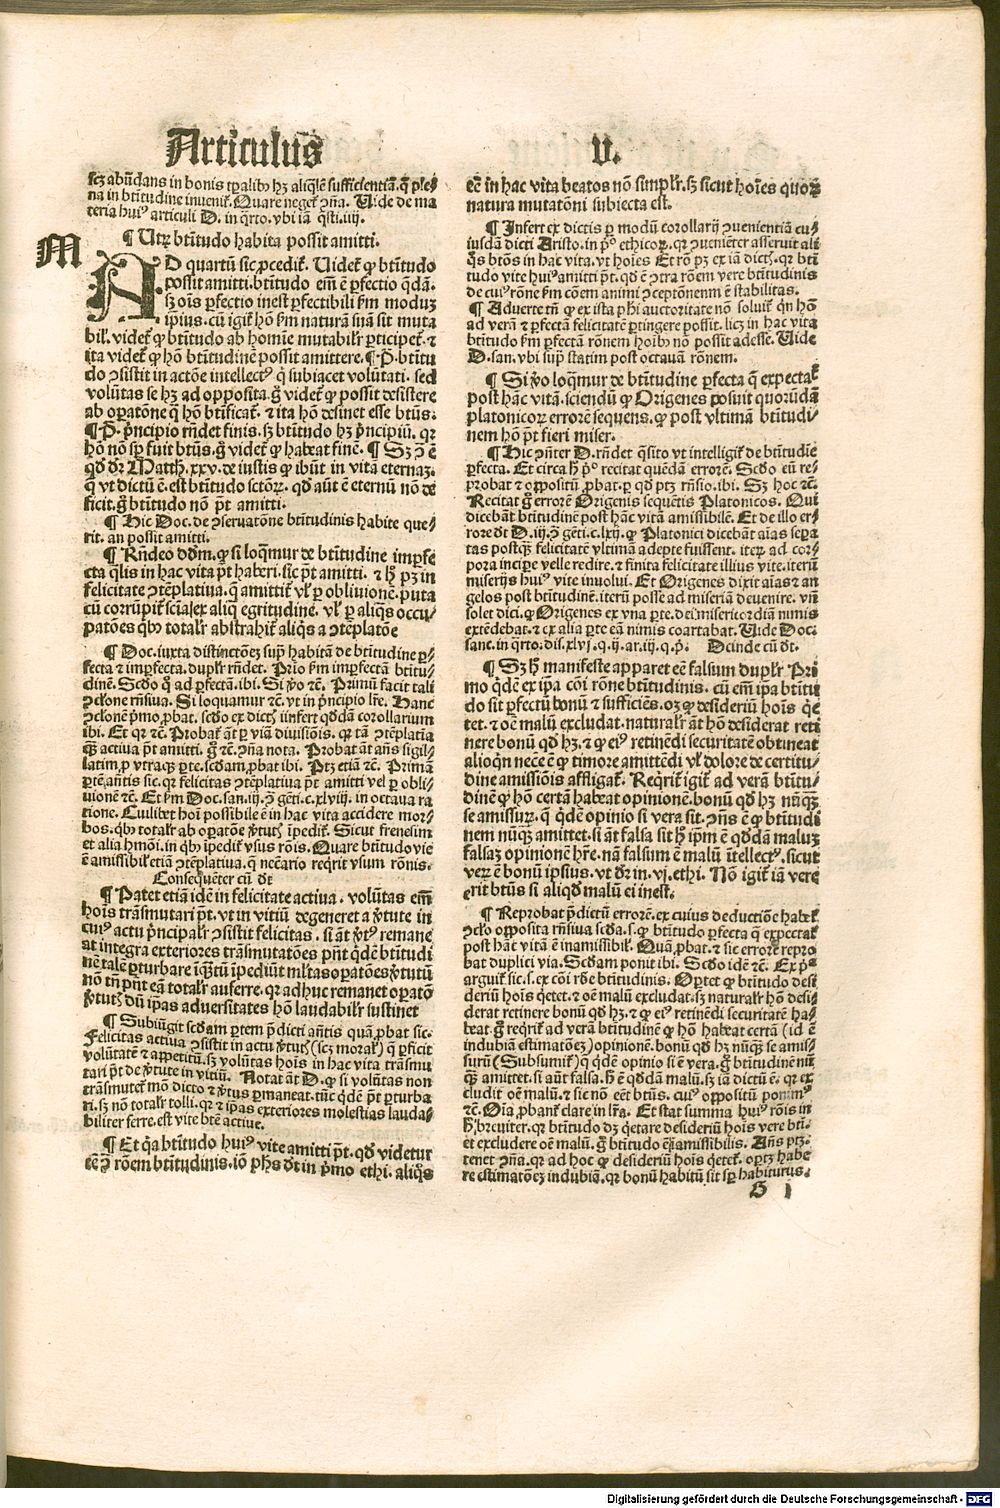 Articulus V.
scꝫ abūdans in bonis tꝑalibꝰ hꝫ aliqlē sufficientiā. q̄ ple⸗
na in btītudine inuenit᷑. Quare neget᷑ ꝯña. Uide de ma
teria huiꝰ articuli D. in q̄rto. vbi iā q̄sti. iiij.
M
¶ Utꝝ btītudo habita possit amitti.
AD quartū sic ꝓcedit᷑. Uidet᷑ ꝙ btītudo
possit amitti. btītudo em̄ ē ꝑfectio q̄dā.
sꝫ oīs ꝑfectio inest ꝑfectibili km̄ moduꝫ
ip̄ius. cū igit᷑ hō km̄ naturā suā sit muta
bil᷑. videt᷑ ꝙ btītudo ab homīe mutabilr̄ ꝑticipet᷑. ⁊
ita videt᷑ ꝙ hō btītudinē possit amittere. ¶ P̄. btītu
do ꝯsistit in actōe intellectꝰ q̄ subiacet volūtati. sed
volūtas se hꝫ ad opposita. g̊ videt᷑ ꝙ possit desistere
ab oꝑatōne q̄ hō btīficat᷑. ⁊ ita hō desinet esse btūs.
¶ P̄. p̄ncipio rn̄det finis. sꝫ btītudo hꝫ p̄ncipiū. qꝛ
hō nō sp̄ fuit btūs. g̊ videt᷑ ꝙ habeat finē. ¶ Sꝫ ꝯ ē
qd̄ dr̄ Matth. xxv. de iustis ꝙ ibūt in vitā eternaꝫ.
q̄ vt dictū ē. est btītudo sctōꝝ. qd̄ aūt ē eternū nō de
ficit. g̊ btītudo nō p̄t amitti.
¶ Hic Doc. de ꝯseruatōne btītudinis habite que⸗
rit. an possit amitti.
¶ Rn̄deo dd̄m. ꝙ si loq̄mur de btītudine imꝑfe
cta q̄lis in hac vita p̄t haberi. sic p̄t amitti. ⁊ hͦ pꝫ in
felicitate ꝯtēplatiua. q̄ amittit᷑ vl̓ ꝑ obliuionē. puta
cū corrūpit᷑ scia ex aliq̄ egritudine. vl̓ ꝑ aliq̄s occu⸗
patōes qbꝰ totalr̄ abstrahit᷑ aliq̄s a ꝯtēplatōe
¶ Doc. iuxta distinctōeꝫ sup̄ habitā de btītudine ꝑ⸗
fecta ⁊ imꝑfecta. duplr̄ rn̄det. Prīo km̄ imꝑfectā btītu⸗
dinē. Scd̄o q̊ ad ꝑfectam. ibi. Si ꝟo ⁊c̄. Primū facit tali
ꝯclone rn̄siua. Si loquamur ⁊c̄. vt in p̄ncipio lr̄e. Hanc
ꝯclonē p̄mo ꝓbat. scd̄o ex dictꝭ infert qd̄dā corollarium
ibi. Et qꝛ ⁊c̄. Probat᷑ aūt ꝑ viā diuisiōis. qꝛ tā ꝯtēplatiā
q̄ꝫ actiua p̄t amitti. g̊ ⁊c̄. ꝯña nota. Probat aūt añs sigil⸗
latim. ꝓ vtraqꝫ ꝑte. scd̄am. ꝓbat ibi. Ptꝫ etiā ⁊c̄. Primā
ꝑtē añtis sic. qꝛ felicitas ꝯtēplatiua p̄t amitti vel ꝑ obli⸗
uionē ⁊c̄. Et km̄ Doc. san. iij. ꝯ gēti. c. xlviij. in octaua ra
tione. Cuilibet hoī possibile ē in hac vita accidere mor⸗
bos. qbꝰ totalr̄ ab oꝑatōe ꝟtutꝭ īpedit᷑. Sicut frenesim
et alia hmōi. in qbꝰ īpedit᷑ vsus rōis. Quare btītudo vie
ē amissibil᷑ etiā ꝯtēplatiua. q̄ necārio reqrit vsum rōnis.
Consequēter cū dt̄
¶ Patet etiā idē in felicitate actiua. volūtas em̄
hoīs trāsmutari p̄t. vt in vitiū degeneret a ꝟtute in
cuiꝰ actu p̄ncipalr̄ ꝯsistit felicitas. si aūt ꝟtꝰ remane
at integra exteriores trāsmutatōes pn̄t qdē btītudi
nē talē ꝑturbare iq̄ꝫtū īpediūt ml̓tas oꝑatōes ꝟtutū
nō tn̄ pn̄t eā totalr̄ auferre. qꝛ adhuc remanet oꝑatō
ꝟtutꝭ dū ip̄as aduersitates hō laudabilr̄ sustinet
¶ Subiūgit scd̄am ꝑtem p̄dicti añtis quā ꝓbat sic.
Felicitas actiua ꝯsistit in actu ꝟtutꝭ (scꝫ moral᷑) q̄ ꝑficit
volūtatē ⁊ appetitū. sꝫ volūtas hoīs in hac vita trāsmu
tari p̄t de ꝟtute in vitiū. Notat aūt D. ꝙ si volūtas non
trāsmutet᷑ mō dicto ⁊ ꝟtus ꝑmaneat. tūc qdē p̄t ꝑturba
ri. sꝫ nō totalr̄ tolli. qꝛ ⁊ ip̄as exteriores molestias lauda⸗
biliter ferre. est vite btē actiue.
¶ Et qa btītudo huiꝰ vite amitti p̄t. qd̄ videtur
eē ꝯ rōem btītudinis. iō ph̄s dt̄ in p̄mo ethi. aliq̄s
eē in hac vita beatos nō simplr̄. sꝫ sicut hoīes quoꝝ
natura mutatōni subiecta est.
¶ Infert ex dictis ꝑ modū corollarij ꝯuenientiā cu⸗
iusdā dicti Aristo. in p̄ͦ ethicoꝝ. qꝛ ꝯueniēter asseruit ali
q̄s btōs in hac vita. vt hoīes Et rō pꝫ ex iā dictꝭ. qꝛ btī
tudo vite huiꝰ amitti p̄t. qd̄ ē ꝯtra rōem vere btītudinis
de cuiꝰ rōne km̄ cōem animi ꝯceptōnem ē stabilitas.
¶ Aduerte tn̄ ꝙ ex ista ph̄i auctoritate nō soluit᷑ qn̄ hō
ad verā ⁊ ꝑfectā felicitatē ꝑtingere possit. licꝫ in hac vita
btītudo km̄ ꝑfectā rōnem hoībꝰ nō possit adesse. Uide
D. san. vbi sup̄ statim post octauā rōnem.
¶ Si ꝟo loq̄mur de btītudine ꝑfecta q̄ expectat᷑
post hāc vitā. sciendū ꝙ Origenes posuit quorūdā
platonicoꝝ errorē sequens. ꝙ post vltimā btītudi⸗
nem hō p̄t fieri miser.
¶ Hic ꝯn̄ter D. rn̄det q̄sito vt intelligit᷑ de btītudie
ꝑfecta. Et circa hͦ p̄ͦ recitat quēdā errorē. Scd̄o eū re⸗
probat ⁊ oppositū ꝓbat. ꝑ qd̄ ptꝫ rn̄sio. ibi. Sꝫ hoc ⁊c̄.
Recitat g̊ errorē Origenis sequētis Platonicos. Qui
dicebāt btītudinē post hāc vitā amissibilē. Et de illo er⸗
rore dt̄ D. iij. ꝯ gēti. c. lxij. ꝙ Platonici dicebāt aīas seꝑa
tas postq̄ꝫ felicitatē vltimā adepte fuissent. iteꝝ ad cor⸗
pora incipere velle redire. ⁊ finita felicitate illius vite. iterū
miserijs huiꝰ vite inuolui. Et Origenes dixit aīas ⁊ an
gelos post btītudinē. iterū posse ad miseriā deuenire. vn̄
solet dici. ꝙ Origenes ex vna ꝑte. dei misericordiā nimis
extēdebat. ⁊ ex alia ꝑte eā nimis coartabat. Uide Doc.
sanc. in q̄rto. dis. xlvj. q. ij. ar. iij. q. p̄ͣ. Deinde cū dt̄.
¶ Sꝫ hͦ manifeste apparet eē falsum duplr̄ Pri
mo qdē ex ip̄a cōi rōne btītudinis. cū em̄ ip̄a btītu
do sit ꝑfectū bonū ⁊ sufficiēs. oꝫ ꝙ desideriū hoīs q̄e
tet. ⁊ oē malū excludat. naturalr̄ aūt hō desiderat reti
nere bonū qd̄ hꝫ. ⁊ ꝙ eiꝰ retinēdi securitatē obtineat
alioqn̄ necē ē ꝙ timore amittēdi vl̓ dolore de certitu⸗
dine amissiōis affligat᷑. Reqrit᷑ igit᷑ ad verā btītu⸗
dinē ꝙ hō certā habeat opinionē. bonū qd̄ hꝫ nūqꝫ
se amissuꝝ. q̄ qdē opinio si vera sit. ꝯñs ē ꝙ btītudi
nem nūqꝫ amittet. si aūt falsa sit hͦ ip̄m ē qd̄dā maluꝫ
falsaꝫ opinionē hr̄e. nā falsum ē malū ītellectꝰ. sicut
veꝝ ē bonū ipsius. vt dr̄ in. vj. ethi. Nō igit᷑ iā vere
erit btūs si aliqd̄ malū ei inest.
¶ Reprobat p̄dictū errorē. ex cuius deductiōe habet᷑
ꝯclo opposita rn̄siua scd̄a. s. ꝙ btītudo ꝑfecta q̄ expectat᷑
post hāc vitā ē inamissibil᷑. Quā ꝓbat. ⁊ sic errorē repro
bat duplici via. Scd̄am ponit ibi. Scd̄o idē ⁊c̄. Ex p̄ͣ
arguit᷑ sic. s. ex cōi rōe btītudinis. Oꝑtet ꝙ btītudo desi
deriū hoīs q̄etet. ⁊ oē malū excludat. sꝫ naturalr̄ hō desi⸗
derat retinere bonū qd̄ hꝫ. ⁊ ꝙ eiꝰ retinēdi securitatē ha⸗
beat. g̊ reqrit᷑ ad verā btītudinē ꝙ hō habeat certā (id ē
indubiā estimatōeꝫ) opinionē. bonū qd̄ hꝫ nūqꝫ se amis⸗
surū (Subsumit᷑) q̄ qdē opinio si ē vera. g̊ btītudinē nū
qꝫ amittet. si aūt falsa. hͦ ē qd̄dā malū. sꝫ iā dictū ē. qꝛ ex
cludit oē malū. ⁊ sic nō eēt btūs. cuiꝰ oppositū ponimꝰ
⁊c̄. Oīa ꝓbant᷑ clare in lr̄a. Et stat summa huiꝰ rōis in
hͦ. breuiter. qꝛ btītudo dꝫ q̄etare desideriū hoīs vere btī.
et excludere oē malū. g̊ btītudo eiꝰ amissibilis. Añs ptꝫ.
tenet ꝯña. qꝛ ad hoc ꝙ desideriū hoīs q̄etet᷑. oꝑtꝫ habe
re estimatōeꝫ indubiā. qꝛ bonū habitū sit sp̄ habiturus.
G 1
Digitalisierung gefördert durch die Deutsche Forschungsgemeinschaft - DFG